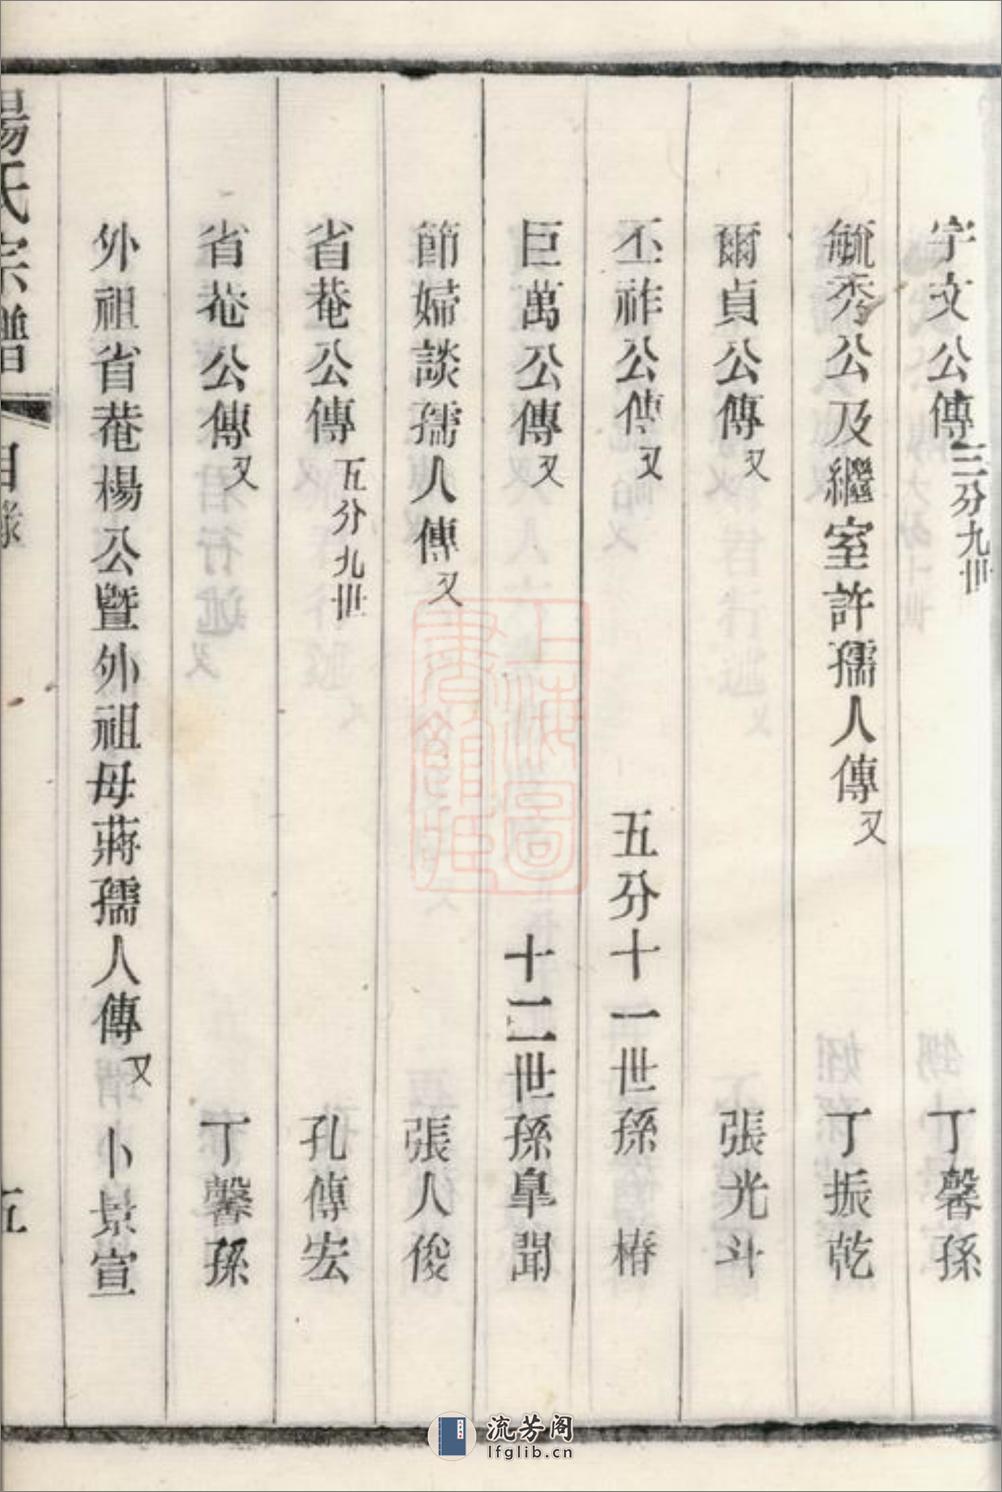 宇文公傳三分九世 丁馨孫
毓秀公及繼室許孺人傳又 丁振乾
爾貞公傳又 張光斗
丕祚公傳又 五分十一世孫 椿
巨萬公傳又 十二世孫阜聞
節婦談孺人傳又 張人俊
省菴公傳五分九世 孔傳宏
省菴公傳又 丁馨孫
外祖省菴楊公曁外祖母蔣孺人傳又 卜景宣
楊氏宗譜 目錄 五
上海圖書館藏
流芳阁
lfglib.cn